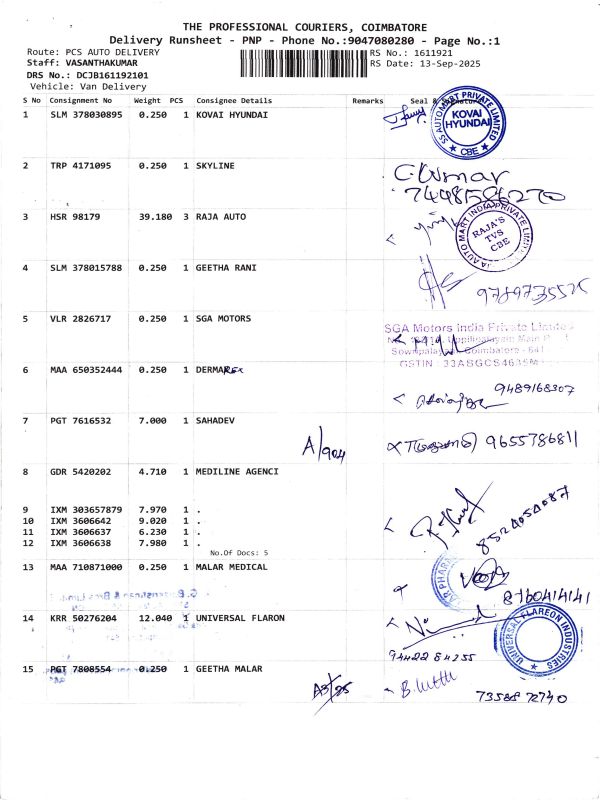 THE PROFESSIONAL COURIERS, COIMBATORE
Delivery Runsheet - PNP - Phone No.:9047080280 - Page No.:1
Route: PCS AUTO DELIVERY
RS No.: 1611921
Staff: VASANTHAKUMAR
RS Date: 13-Sep-2025
DRS No.: DCJB161192101
Vehicle: Van Delivery
S No Consignment No Weight PCS Consignee Details Remarks Seal &
1 SLM 378030895 0.250 1 KOVAI HYUNDAI
SS AUTO MART PRIVATE LIMITED
KOVAI HYUNDAI
★ CBE ★
2 TRP 4171095 0.250 1 SKYLINE
C. Kumar
3 HSR 98179 39.180 3 RAJA AUTO
RAJA'S TVS CBE
4 SLM 378015788 0.250 1 GEETHA RANI
5 VLR 2826717 0.250 1 SGA MOTORS
SGA Motors India Private Limited
Coimbatore - 641
6 MAA 650352444 0.250 1 DERMAREX
9489168307
7 PGT 7616532 7.000 1 SAHADEV
A/904
9655786811
8 GDR 5420202 4.710 1 MEDILINE AGENCI
9 IXM 303657879 7.970 1 .
10 IXM 3606642 9.020 1 .
11 IXM 3606637 6.230 1 .
12 IXM 3606638 7.980 1 .
8524054087
No.Of Docs: 5
13 MAA 710871000 0.250 1 MALAR MEDICAL
8760414141
14 KRR 50276204 12.040 1 UNIVERSAL FLARON
UNIVERSAL FLAREON INDUSTRIES
94422 84255
15 PGT 7808554 0.250 1 GEETHA MALAR
73588 72740